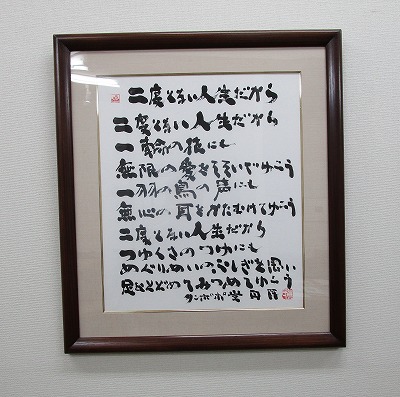 二度とない人生だから
二度とない人生だから
一輪の花にも
無限の愛をそそいでゆこう
一羽の鳥の声にも
無心の耳をかたむけてゆこう
二度とない人生だから
つゆくさのつゆにも
めぐりあいのふしぎを思い
足をとどめてみつめてゆこう
タンポポ堂